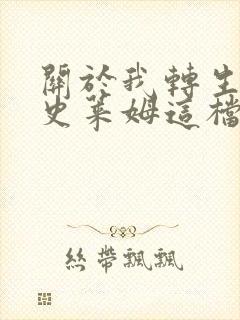 關於我轉生
史萊姆這檔
絲帶飄飄